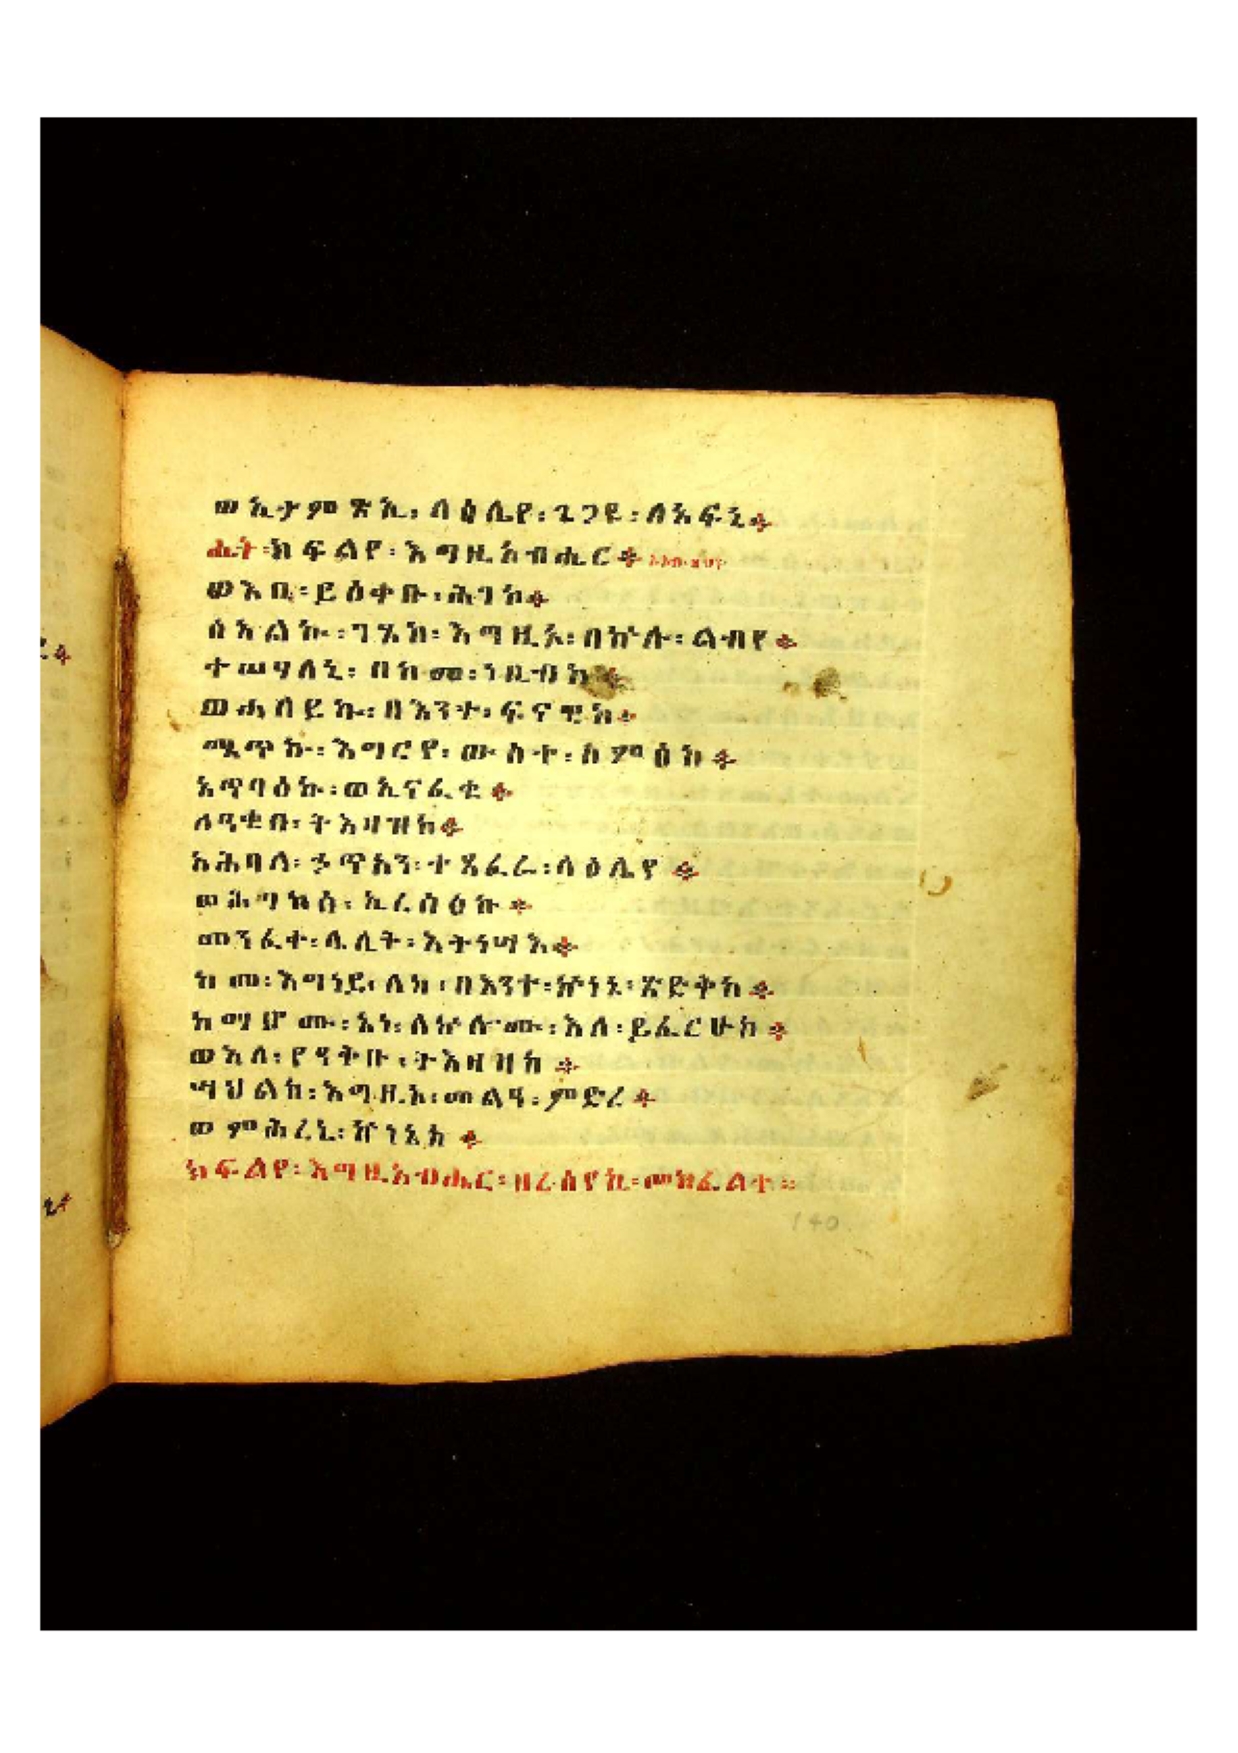 ወኢታምጽኢ፡ ላዕሌየ፡ ጌጋየ፡ ለአፍኒ
ሔት፡ ክፍልየ፡ እግዚአብሔር
ወእቤ፡ ይዕቀቡ፡ ሕገከ
ሰአልኩ፡ ገጸከ፡ እግዚኦ፡ በኵሉ፡ ልብየ
ተሠሃለኒ፡ በከመ፡ ነቢብከ
ወሐለይኩ፡ በእንተ፡ ፍናዊከ
ሜጥኩ፡ እግርየ፡ ውስተ፡ ስምዕከ
አጥባዕኩ፡ ወኢናፈቂ
ለዓቂበ፡ ትእዛዝከ
አሕባለ፡ ኃጥአን፡ ተጸፈራ፡ ላዕሌየ
ወሕግከሰ፡ ኢረሳዕኩ
መንፈቀ፡ ሌሊት፡ እትነሣእ
ከመ፡ እግነይ፡ ለከ፡ በእንተ፡ ኵነኔ፡ ጽድቅከ
ከማሆሙ፡ አነ፡ ለኵሎሙ፡ እለ፡ ይፈርሁከ
ወእለ፡ የዓቅቡ፡ ትእዛዝከ
ሣህልከ፡ እግዚአ፡ መልዓ፡ ምድረ
ወምሕረኒ፡ ኵነኔከ
ክፍልየ፡ እግዚአብሔር፡ ዘረሰየኪ፡ መክፈልተ።
140